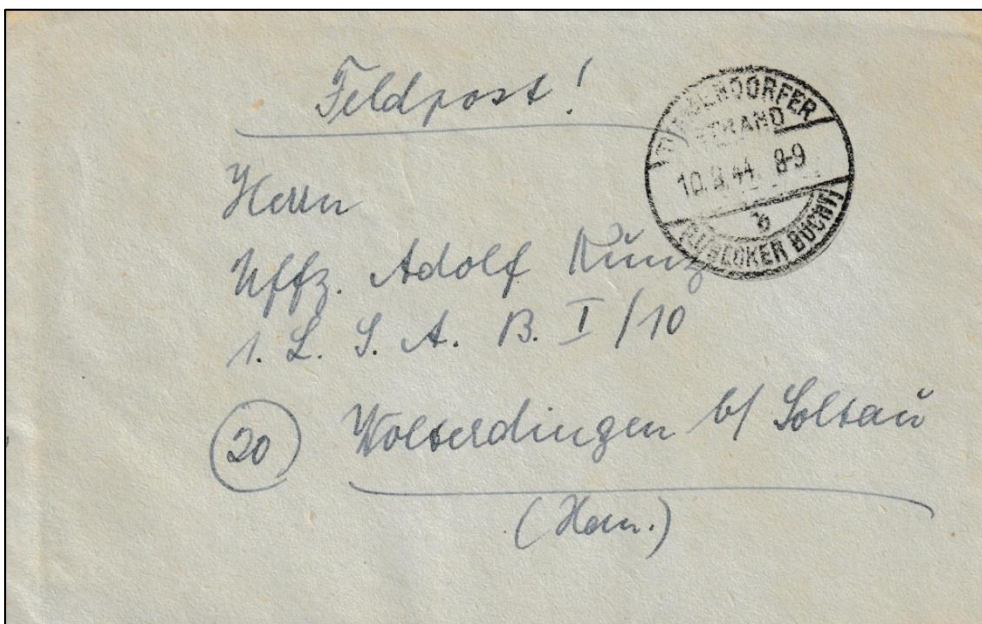 Feldpost!
TIMMENDORFER
STRAND
8-9
b
(LÜBECKER BUCHT)
Herrn
Uffz. Adolf Kunz
1. L. S. A. B. I/10
20 Wolterdingen b/ Soltau
(Han.)